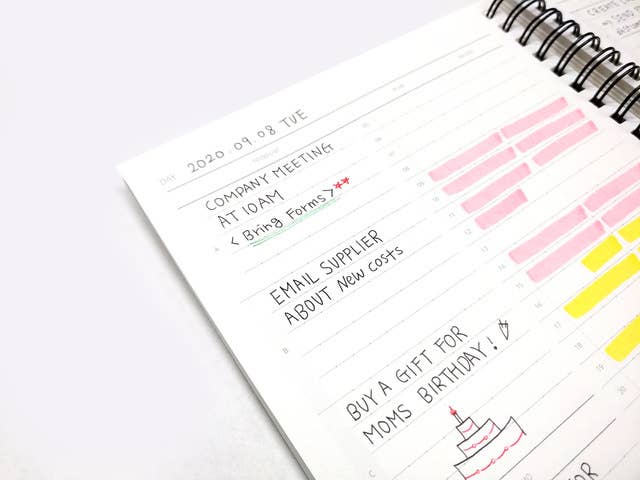 DAY 2020.09.08 TUE
COMPANY MEETING
AT 10AM
A < Bring Forms > **
EMAIL SUPPLIER
ABOUT New costs
B
BUY A GIFT FOR
MOMS BIRTHDAY!
C
08
09
10
11
12
13
14
15
16
17
18
19
20